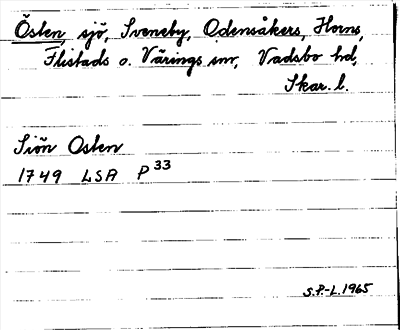 Östen, sjö, Sveneby, Odensåkers, Horns,
Flistads o. Värings snr, Vadsbo hd,
Skar. l.
Siön Osten
1749 LSA P 33
S.P.-L. 1965